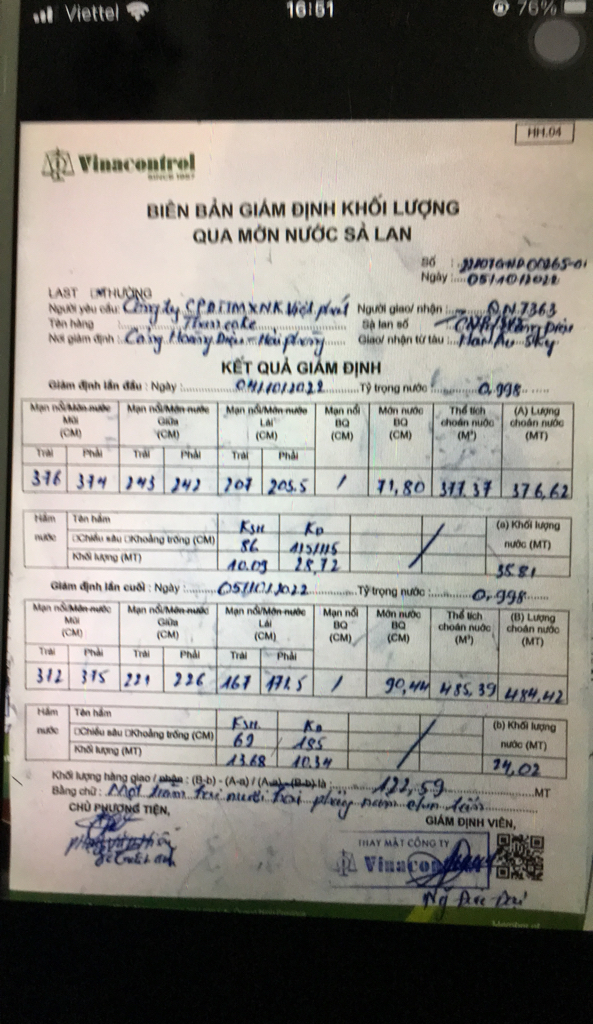 Viettel 16:51 76%
HH.04
Vinacontrol
SINCE 1957
BIÊN BẢN GIÁM ĐỊNH KHỐI LƯỢNG
QUA MỚN NƯỚC SÀ LAN
Số :
Ngày : 05/10/2022
LAST THƯỜNG
Người yêu cầu: Công ty CPĐTTMXNK Việt phát Người giao/ nhận : QN7363
Tên hàng : Than coke Sà lan số
Nơi giám định : Cảng Hoàng Diệu - Hải phòng Giao/ nhận từ tàu : Sky
KẾT QUẢ GIÁM ĐỊNH
Giám định lần đầu : Ngày : 04/10/2022 Tỷ trọng nước : 0,998
Mạn nổi/Mớn nước Mũi (CM) Mạn nổi/Mớn nước Giữa (CM) Mạn nổi/Mớn nước Lái (CM) Mạn nổi BQ (CM) Mớn nước BQ (CM) Thể tích choán nước (M³) (A) Lượng choán nước (MT)
Trái Phải Trái Phải Trái Phải
376 374 243 242 207 205.5 / 71,80 377,37 376,62
Hầm nước Tên hầm KSH KĐ (a) Khối lượng nước (MT)
□Chiều sâu □Khoảng trống (CM) 86 115/115
Khối lượng (MT) 10.09 25,72 35.81
Giám định lần cuối : Ngày : 05/10/2022 Tỷ trọng nước : 0,998
Mạn nổi/Mớn nước Mũi (CM) Mạn nổi/Mớn nước Giữa (CM) Mạn nổi/Mớn nước Lái (CM) Mạn nổi BQ (CM) Mớn nước BQ (CM) Thể tích choán nước (M³) (B) Lượng choán nước (MT)
Trái Phải Trái Phải Trái Phải
312 315 221 226 167 171.5 / 90,44 485,39 484,42
Hầm nước Tên hầm KSH KĐ (b) Khối lượng nước (MT)
□Chiều sâu □Khoảng trống (CM) 69 185
Khối lượng (MT) 13.68 10.34 24,02
Khối lượng hàng giao / nhận : (B-b) - (A-a) / (A-a) - (B-b) là : 122,59 MT
Bằng chữ : Một trăm hai mươi hai phảy năm chín tấn
CHỦ PHƯƠNG TIỆN, GIÁM ĐỊNH VIÊN,
THAY MẶT CÔNG TY
Vinacontrol
Member of